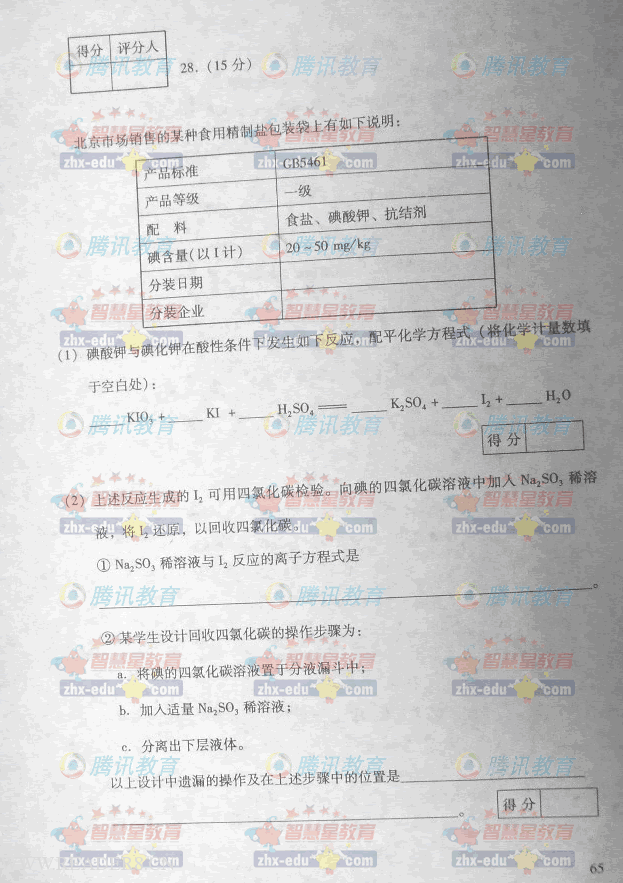 得分 评分人
28.(15 分)
北京市场销售的某种食用精制盐包装袋上有如下说明:
产品标准 GB5461
产品等级 一级
配 料 食盐、碘酸钾、抗结剂
碘含量(以 I 计) 20 ~ 50 mg/kg
分装日期
分装企业
(1) 碘酸钾与碘化钾在酸性条件下发生如下反应,配平化学方程式(将化学计量数填
于空白处):
____ KIO₃ + ____ KI + ____ H₂SO₄ ═══ ____ K₂SO₄ + ____ I₂ + ____ H₂O
得 分
(2) 上述反应生成的 I₂ 可用四氯化碳检验。向碘的四氯化碳溶液中加入 Na₂SO₃ 稀溶
液,将 I₂ 还原,以回收四氯化碳。
① Na₂SO₃ 稀溶液与 I₂ 反应的离子方程式是
____。
② 某学生设计回收四氯化碳的操作步骤为:
a. 将碘的四氯化碳溶液置于分液漏斗中;
b. 加入适量 Na₂SO₃ 稀溶液;
c. 分离出下层液体。
以上设计中遗漏的操作及在上述步骤中的位置是____
____。
得 分
65
腾讯教育
智慧星教育
zhx-edu.com